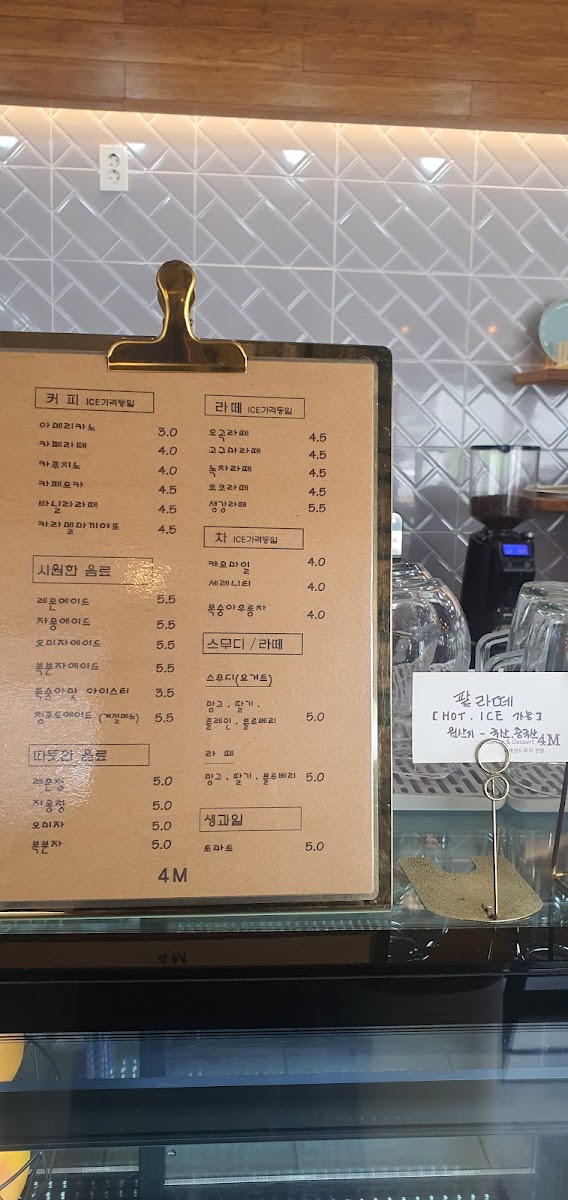 커 피 ICE가격동일
아메리카노 3.0
카페라떼 4.0
카푸치노 4.0
카페모카 4.5
바닐라라떼 4.5
카라멜마끼야또 4.5
시원한 음료
레몬에이드 5.5
자몽에이드 5.5
오미자에이드 5.5
복분자에이드 5.5
복숭아맛 아이스티 3.5
청포도에이드 (계절메뉴) 5.5
따뜻한 음료
레몬청 5.0
자몽청 5.0
오미자 5.0
복분자 5.0
라떼 ICE가격동일
오곡라떼 4.5
고구마라떼 4.5
녹차라떼 4.5
초코라떼 4.5
생강라떼 5.5
차 ICE가격동일
캐모마일 4.0
세레니티 4.0
복숭아우롱차 4.0
스무디/라떼
스무디(요거트)
망고 · 딸기 ·
플레인 · 블루베리 5.0
라 떼
망고 · 딸기 · 블루베리 5.0
생과일
토마토 5.0
4M
팥 라떼
[HOT . ICE 가능]
원산지 - 국산, 중국산
& Dessert 4M